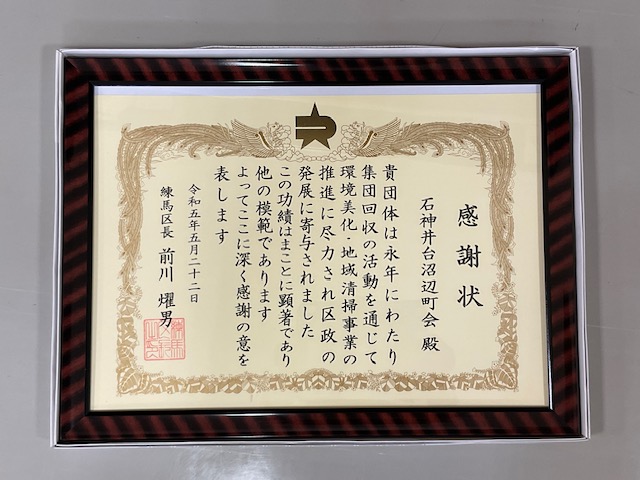 感謝状
石神井台沼辺町会 殿
貴団体は永年にわたり
集団回収の活動を通じて
環境美化・地域清掃事業の
推進に尽力され区政の
発展に寄与されました
この功績はまことに顕著であり
他の模範であります
よってここに深く感謝の意を
表します
令和五年五月二十二日
練馬区長 前川 燿男